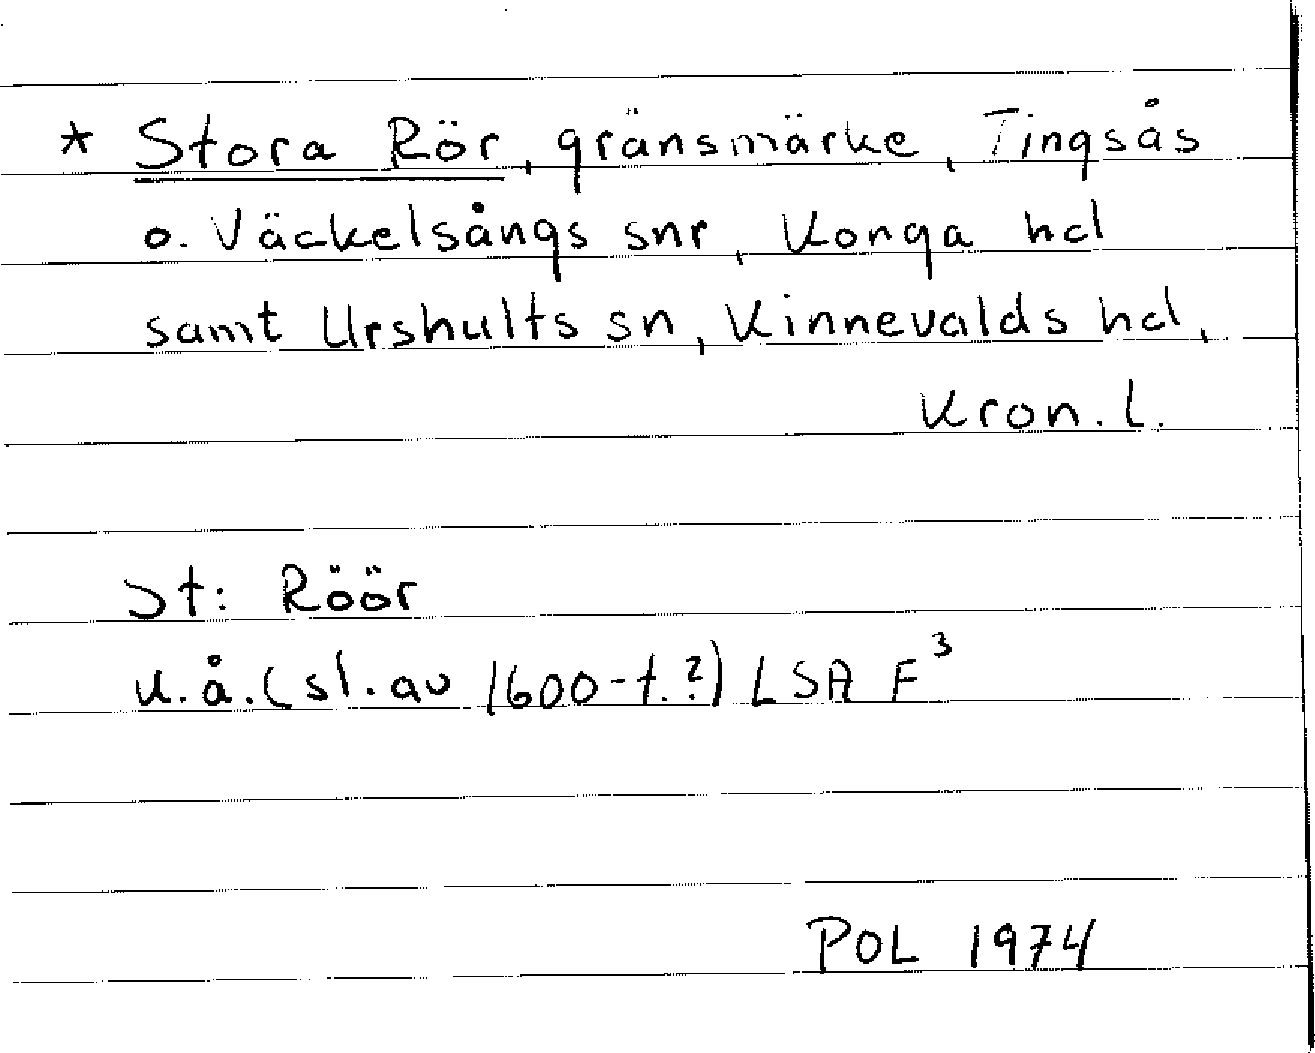 * Stora Rör, gränsmärke, Tingsås
o. Väckelsångs snr, Konga hd
samt Urshults sn, Kinnevalds hd,
Kron. l.
St: Röör
u.å. (sl. av 1600-t.?) LSA F³
POL 1974